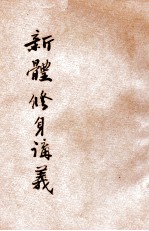 新體修身講義